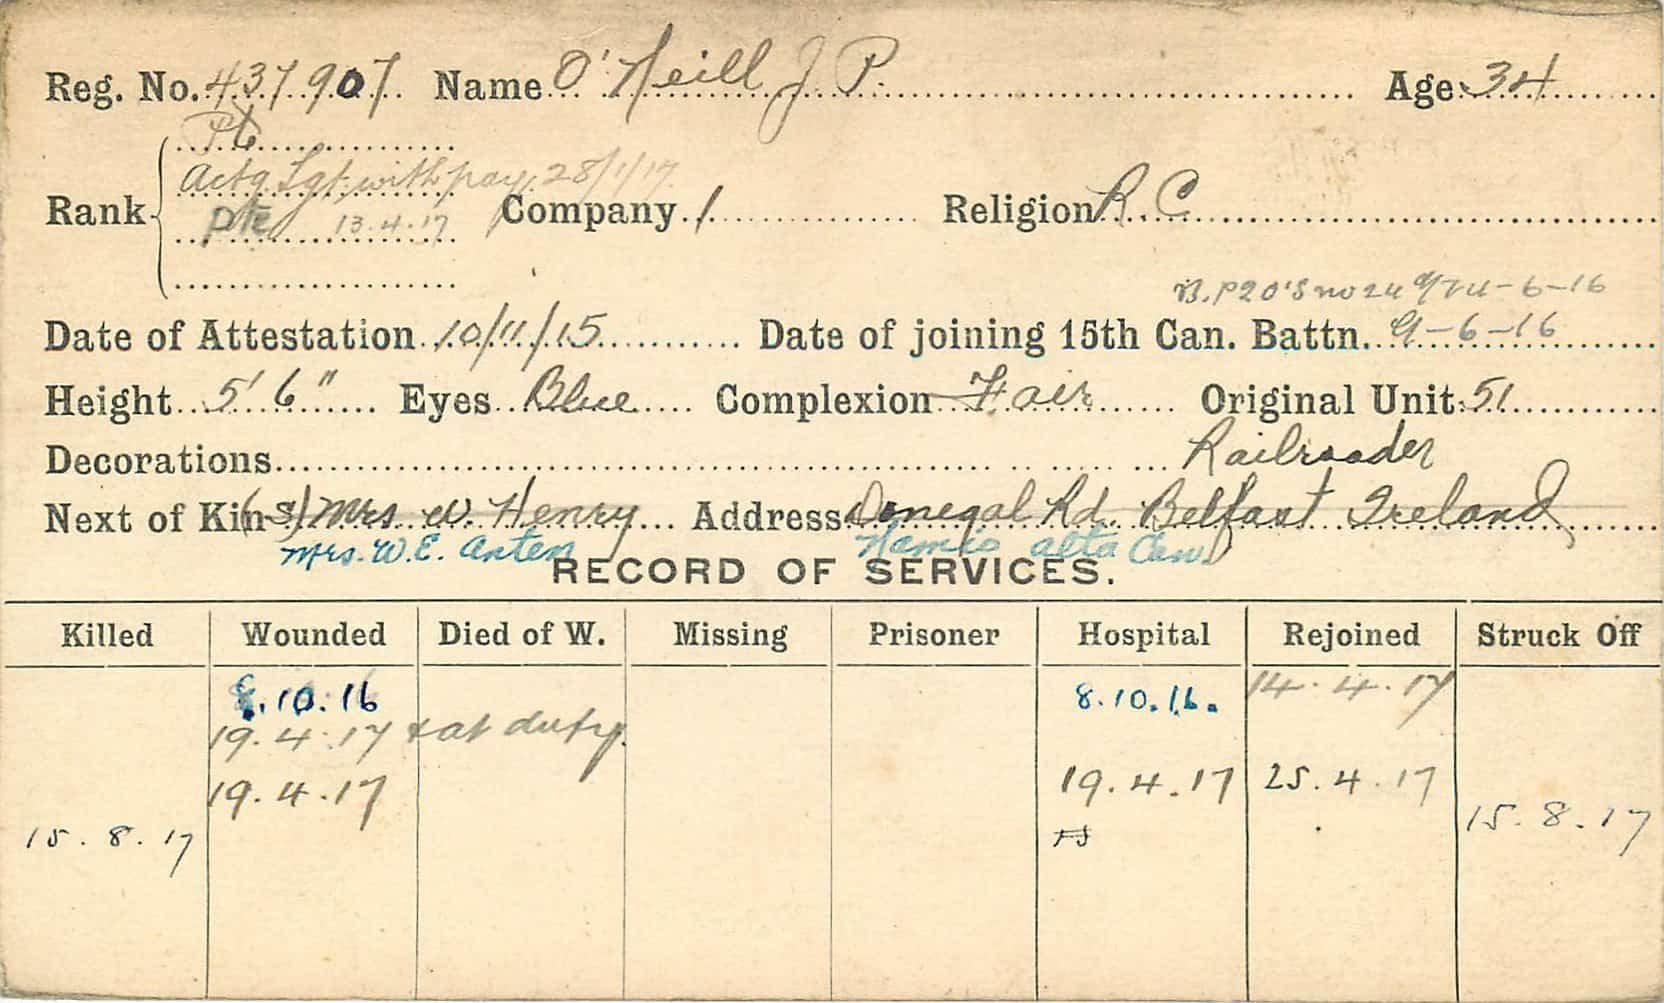 Reg. No. 437907 Name O'Neill J. P. Age 34
Pte
Actg Sgt. with pay, 28/1/17
Rank Pte 13.4.17 Company 1 Religion R.C
B. P20'S no 24 9/24-6-16
Date of Attestation 10/11/15 Date of joining 15th Can. Battn. 9-6-16
Height 5' 6" Eyes Blue Complexion Fair Original Unit 51
Decorations Railroader
Next of Kin (S) Mrs W. Henry Address Donegal Rd. Belfast Ireland
Mrs. W. E. Anten Alta Can.
RECORD OF SERVICES.
Killed Wounded Died of W. Missing Prisoner Hospital Rejoined Struck Off
8.10.16 8.10.16. 14.4.17
19.4.17 at duty
19.4.17 19.4.17 25.4.17
15.8.17 15.8.17